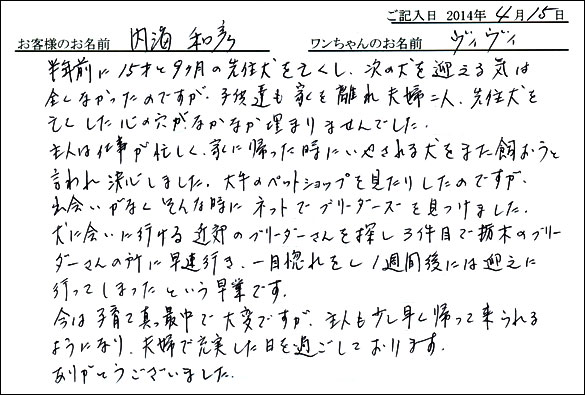 ご記入日 2014年 4月 15日
お客様のお名前 内海 和彦 ワンちゃんのお名前 ヴィヴィ
半年前に15才と9ヶ月の先住犬を亡くし、次の犬を迎える気は
全くなかったのですが、子供達も家を離れ夫婦二人、先住犬を
亡くした心の穴がなかなか埋まりませんでした。
主人は仕事が忙しく、家に帰った時にいやされる犬をまた飼おうと
言われ決心しました。大手のペットショップを見たりしたのですが、
出会いがなくそんな時にネットでブリーダーズを見つけました。
犬に会いに行ける近郊のブリーダーさんを探し3件目で栃木のブリー
ダーさんの所に早速行き、一目惚れをし1週間後には迎えに
行ってしまったという早業です。
今は子育て真っ最中で大変ですが、主人も少し早く帰って来られる
ようになり、夫婦で充実した日を過ごしております。
ありがとうございました。